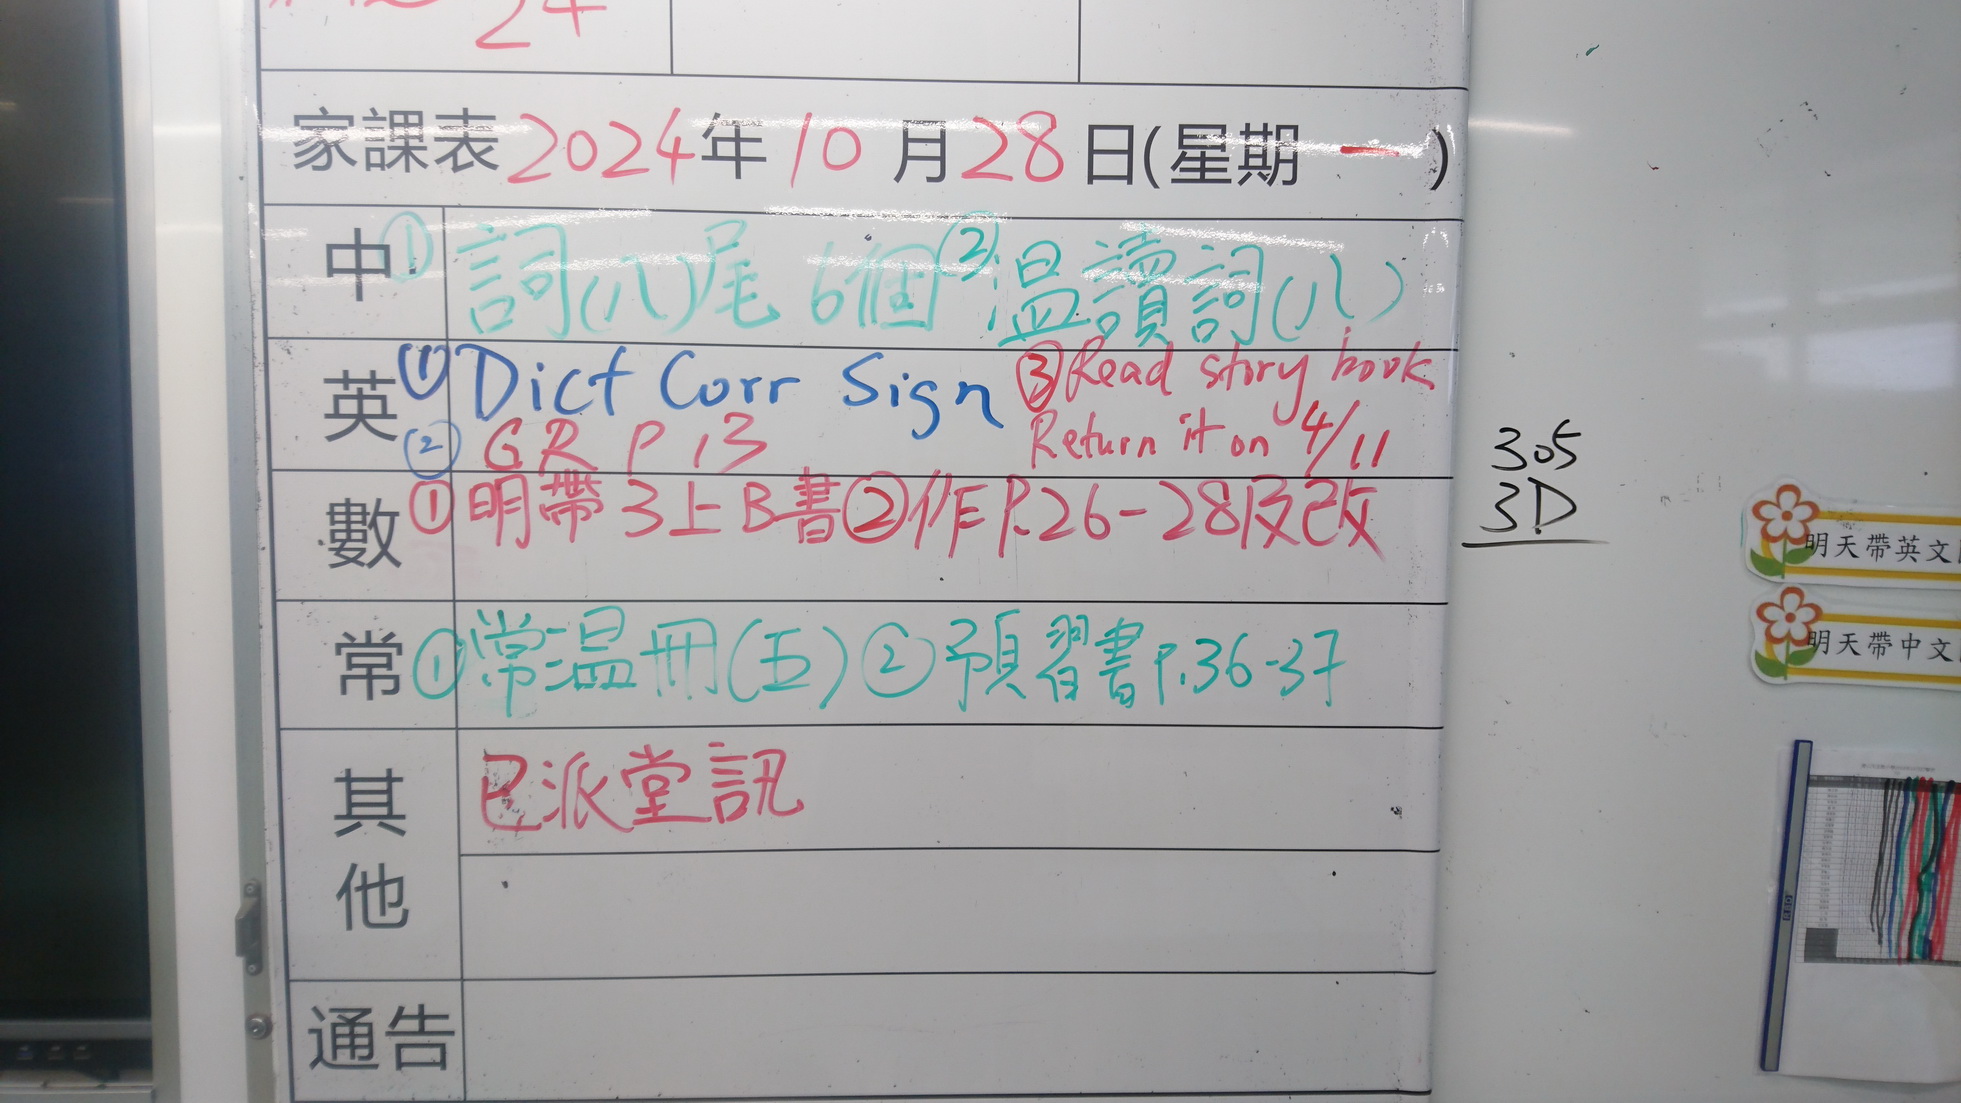 24
家課表 2024年10月28日(星期 一 )
中 ① 詞(八)尾6個 ② 溫讀詞(八)
英 ① Dict Corr Sign ③ Read story book
② GR P 13 Return it on 4/11
數 ① 明帶3上B書 ② 作P.26-28及改
常 ① 常溫冊(五) ② 預習書P.36-37
其他 已派堂訊
通告
305
3D
明天帶英文
明天帶中文